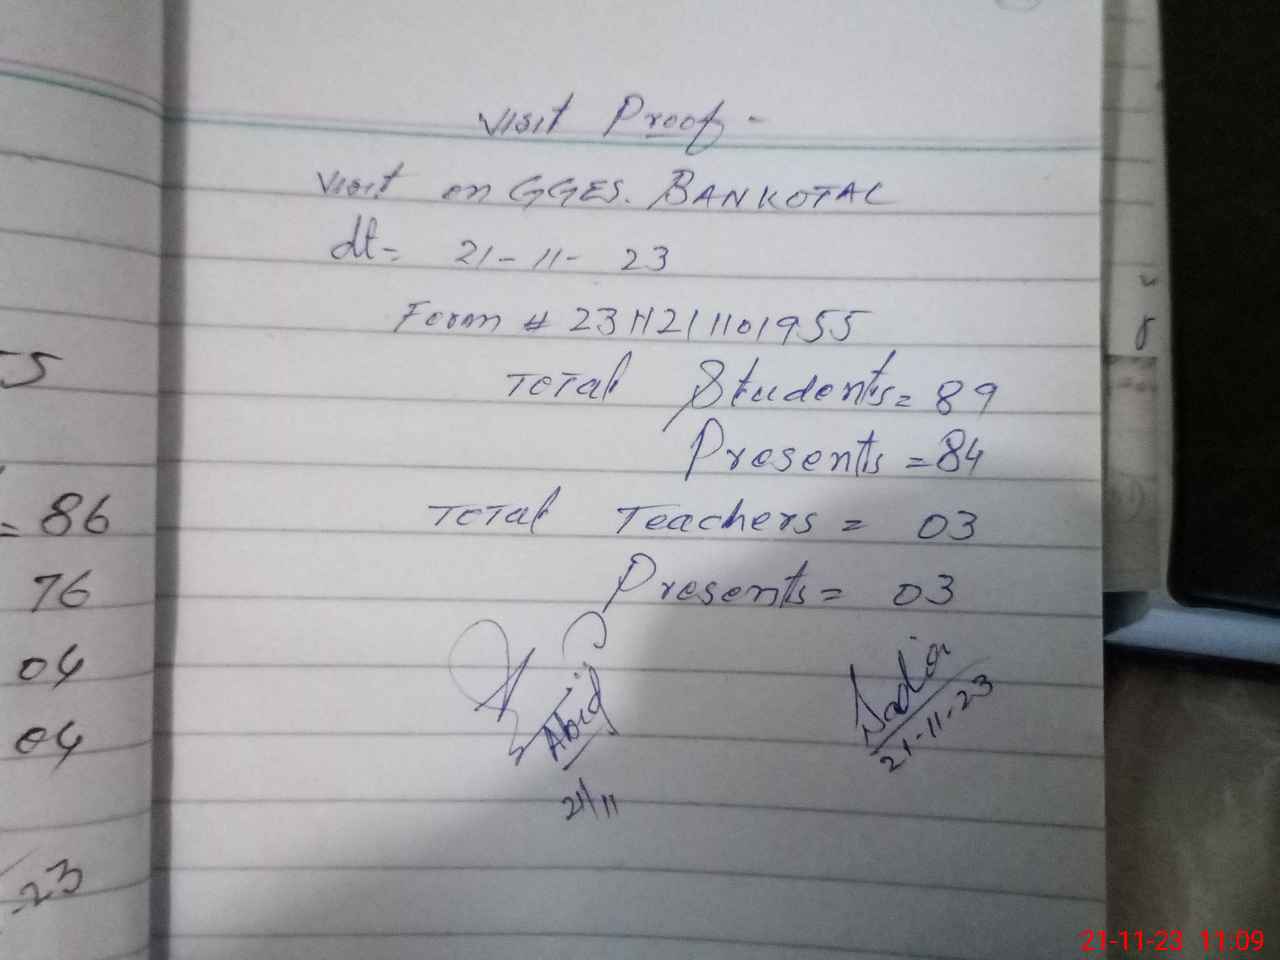 Visit Proof -
Visit on GGES. BANKOTAL
dt= 21-11- 23
Form # 2311211101955
Total Students= 89
Presents =84
Total Teachers = 03
Presents= 03
Abid
21/11
Sadia
21-11-23
5
= 86
76
04
04
23
21-11-23 11:09